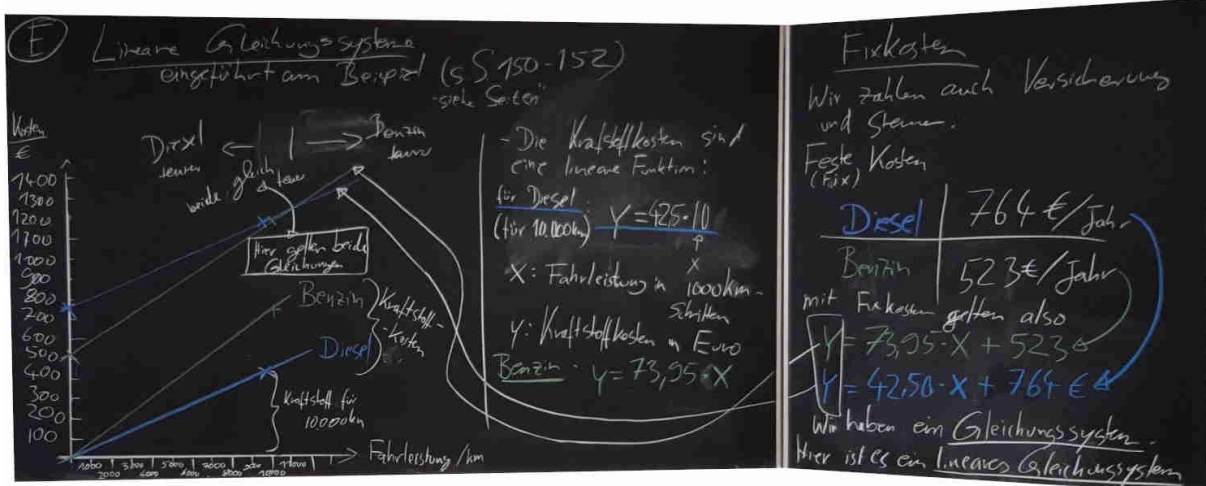 E
Lineare Gleichungssysteme
eingeführt am Beispiel (s. S 150-152)
"siehe Seiten"
Kosten
€
Diesel
teurer
Benzin
teurer
beide gleich teuer
1400
1300
1200
1100
1000
900
800
700
600
500
400
300
200
100
Hier gelten beide
Gleichungen
Benzin
Diesel
Kraftstoff-
-Kosten
Kraftstoff für
10000km
1000 3000 5000 7000 9000 11000
2000 4000 6000 8000 10000
Fahrleistung /km
- Die Kraftstoffkosten sind
eine lineare Funktion:
für Diesel:
(für 10.000km) y = 425·10
x
X: Fahrleistung in 1000km-
Schritten
y: Kraftstoffkosten in Euro
Benzin: y = 73,95·X
Fixkosten
Wir zahlen auch Versicherung
und Steuer:
Feste Kosten
(Fix)
Diesel 764 €/Jahr
Benzin 523 €/Jahr
mit Fixkosten gelten also
Y = 73,95·X + 523
Y = 42,50·X + 764 €
Wir haben ein Gleichungssystem.
Hier ist es ein lineares Gleichungssystem